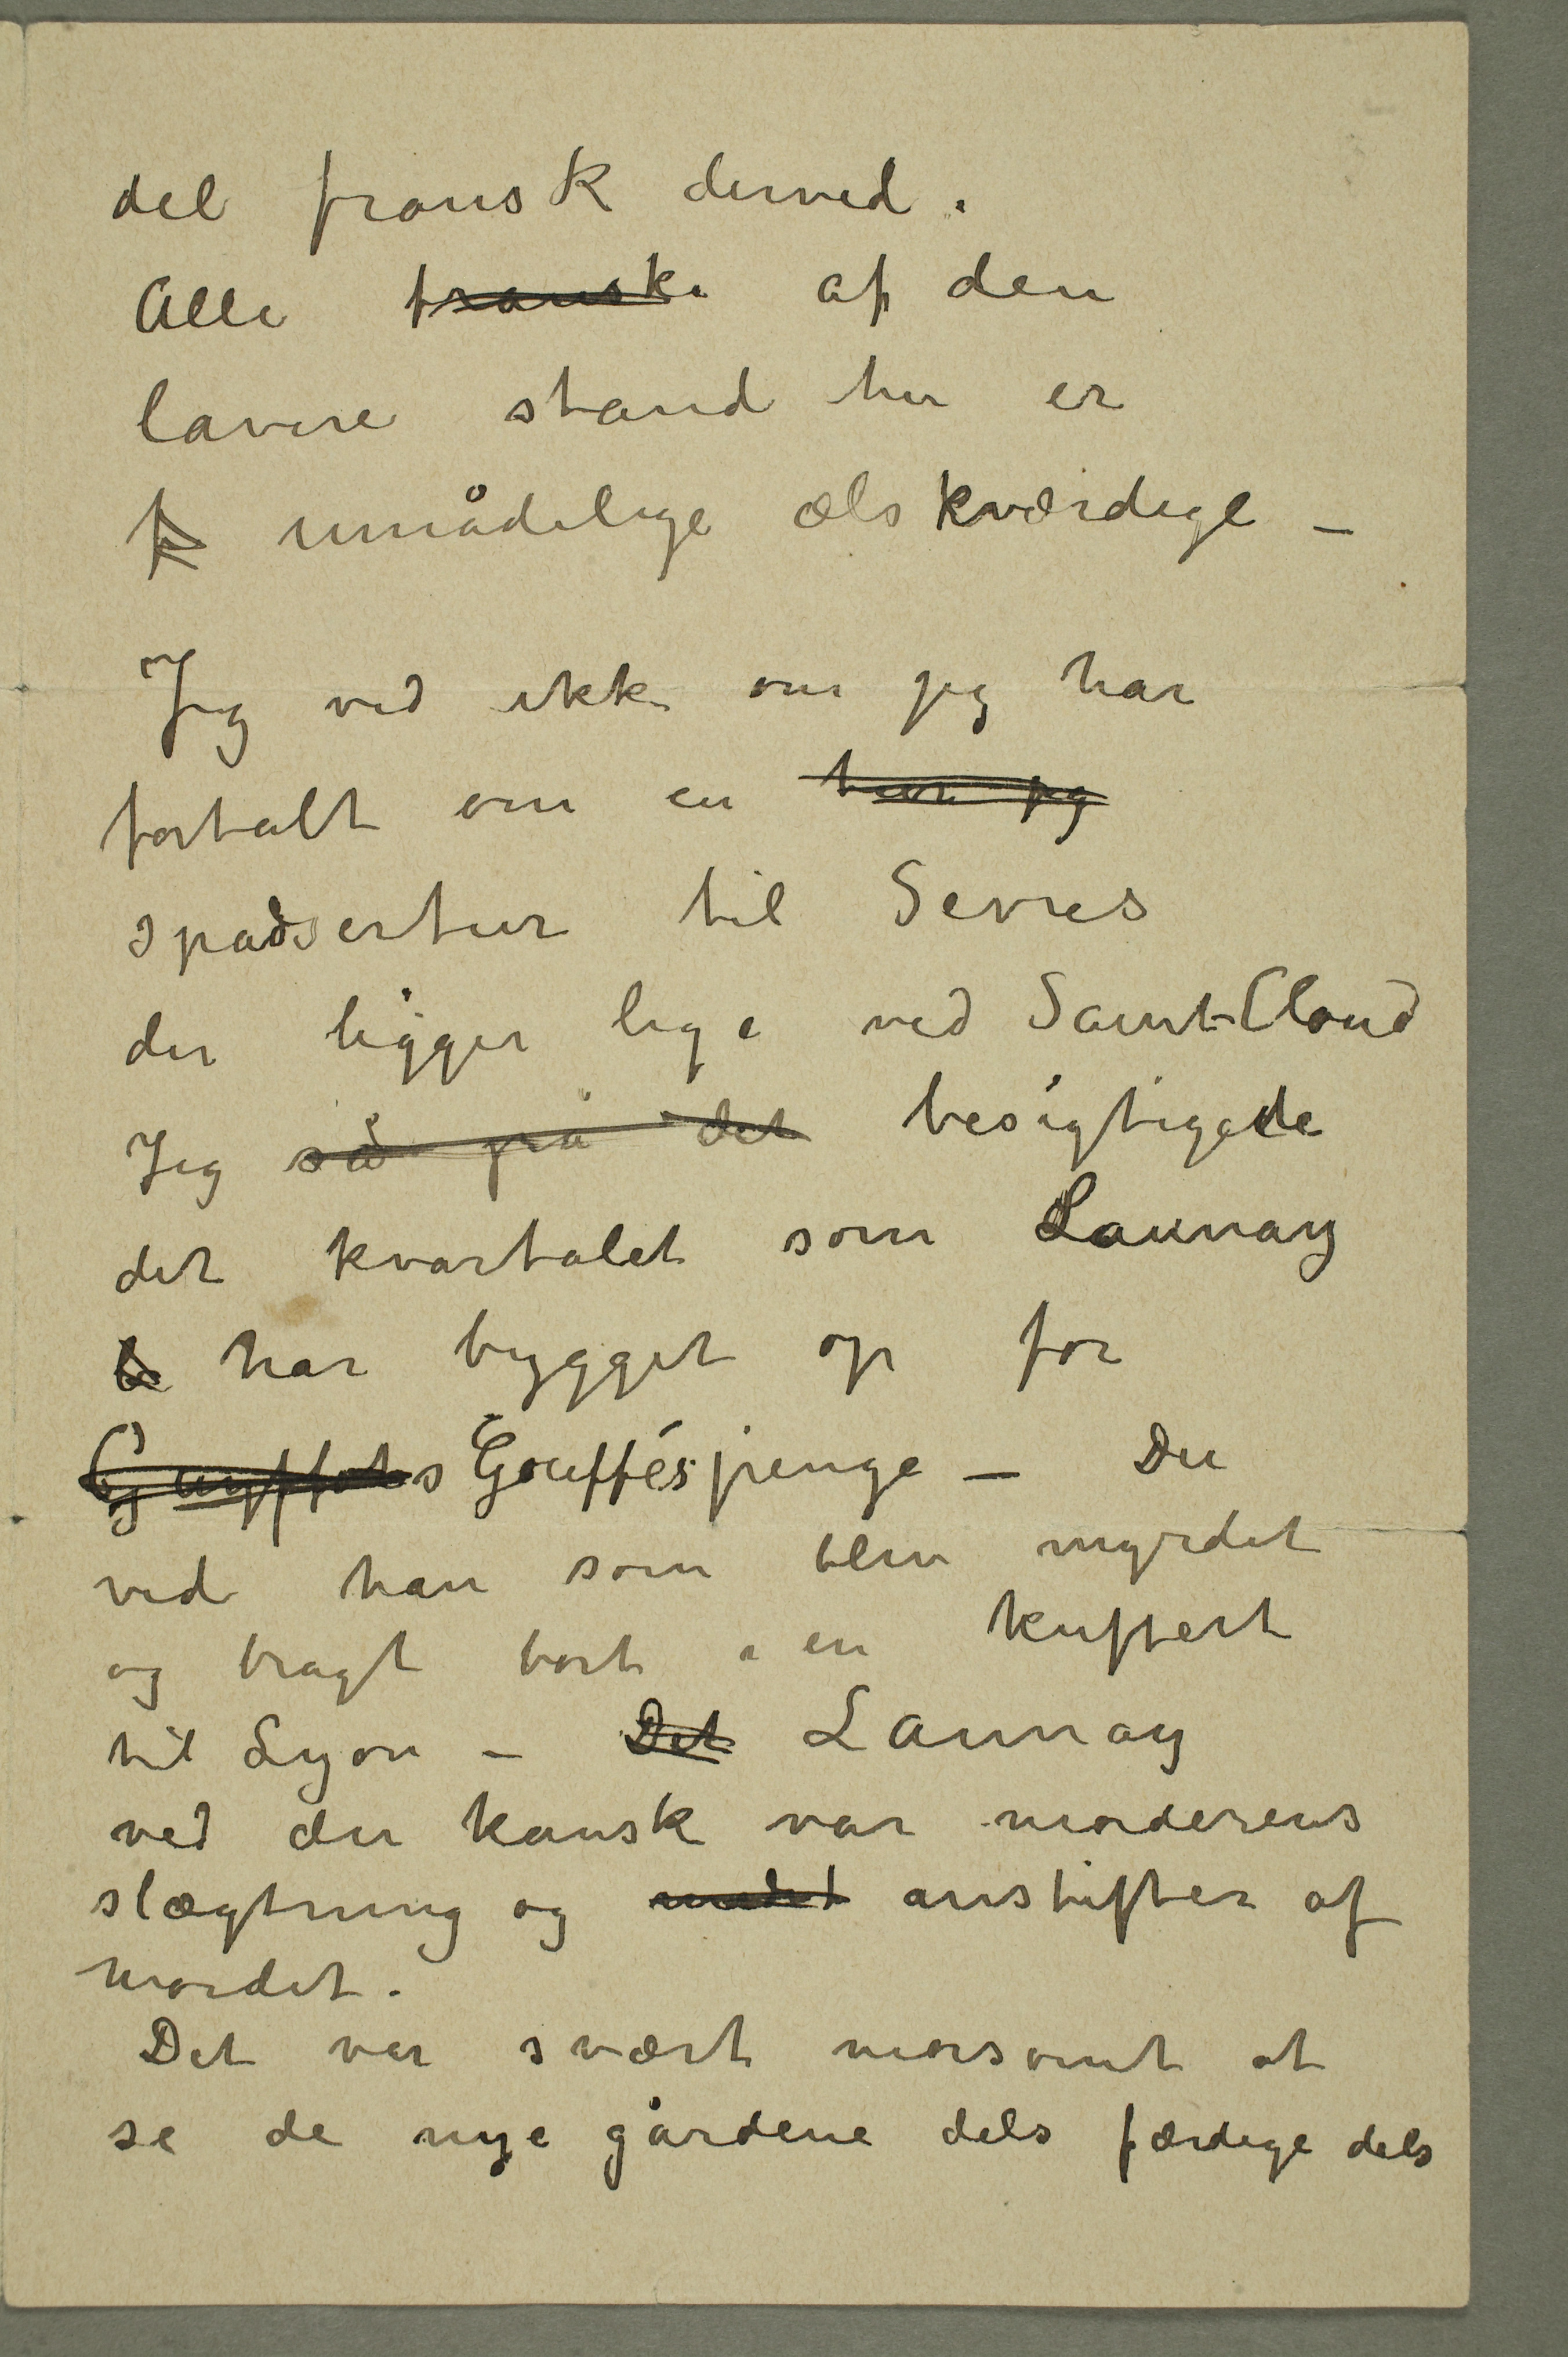 del fransk derved.
Alle franske af den
lavere stand her er
f umådelige ælskværdige –
Jeg ved ikke om jeg har
fortalt om en tur jeg
spadsertur til Sevres
der ligger lige ved Saint-Cloud
Jeg så på det besigtigede
det kvartalet som Launay
b har bygget op for
Guyffots Gouffés penge – Du
ved han som blev myrdet
og bragt bort i en kuffert
til Lyon – Det Launay
ved du kanske var morderens
slægtning og anstifter af
mordet.
Det var svært morsomt at
se de nye gårdene dels færdige dels